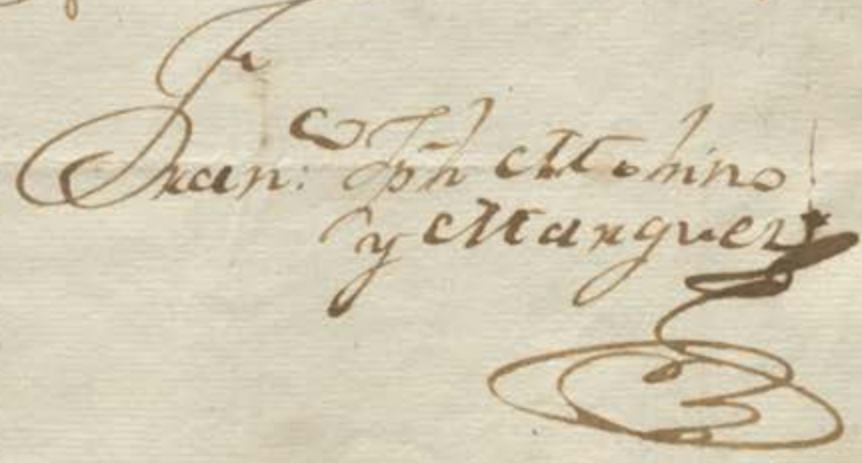 Fran.co Jph Molino
y Marquez